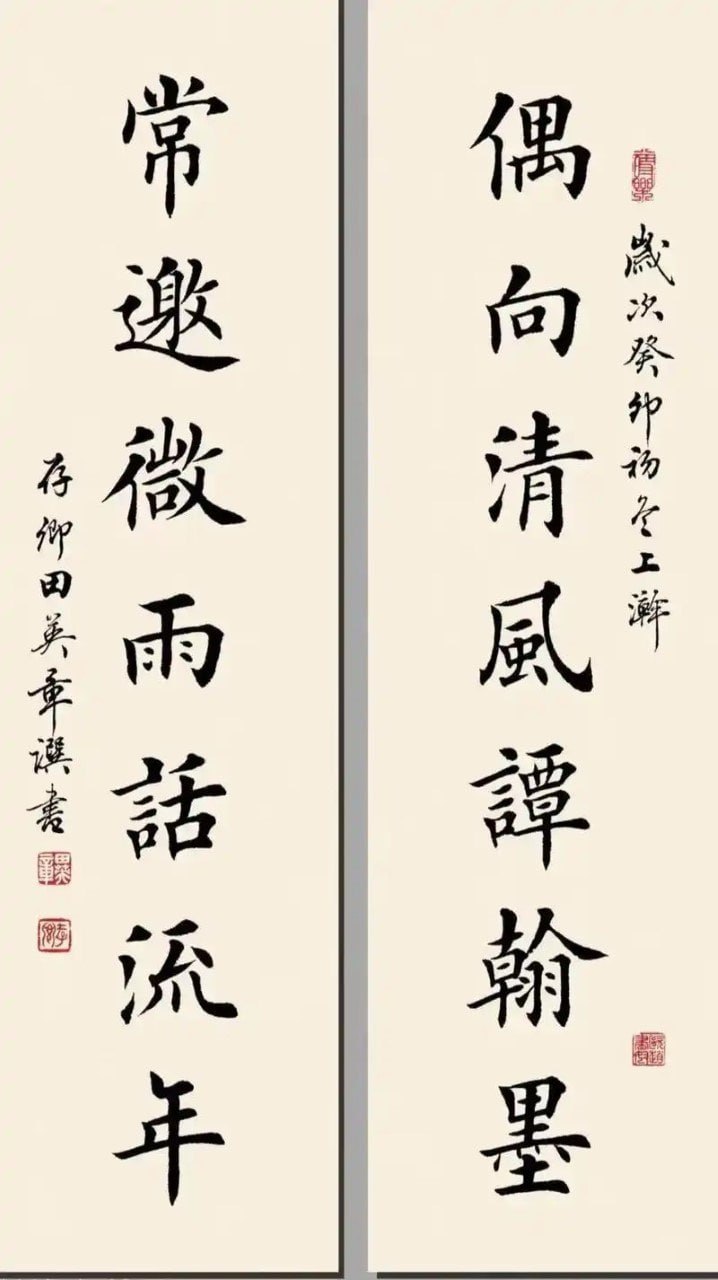 歲次癸卯初冬上澣
偶向清風譚翰墨
常邀微雨話流年
存卿田英章譔書
田英章